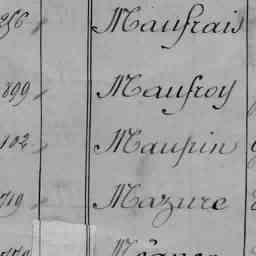 256 Maufrais
899 Maufroy
102 Maupin
719 Mazure